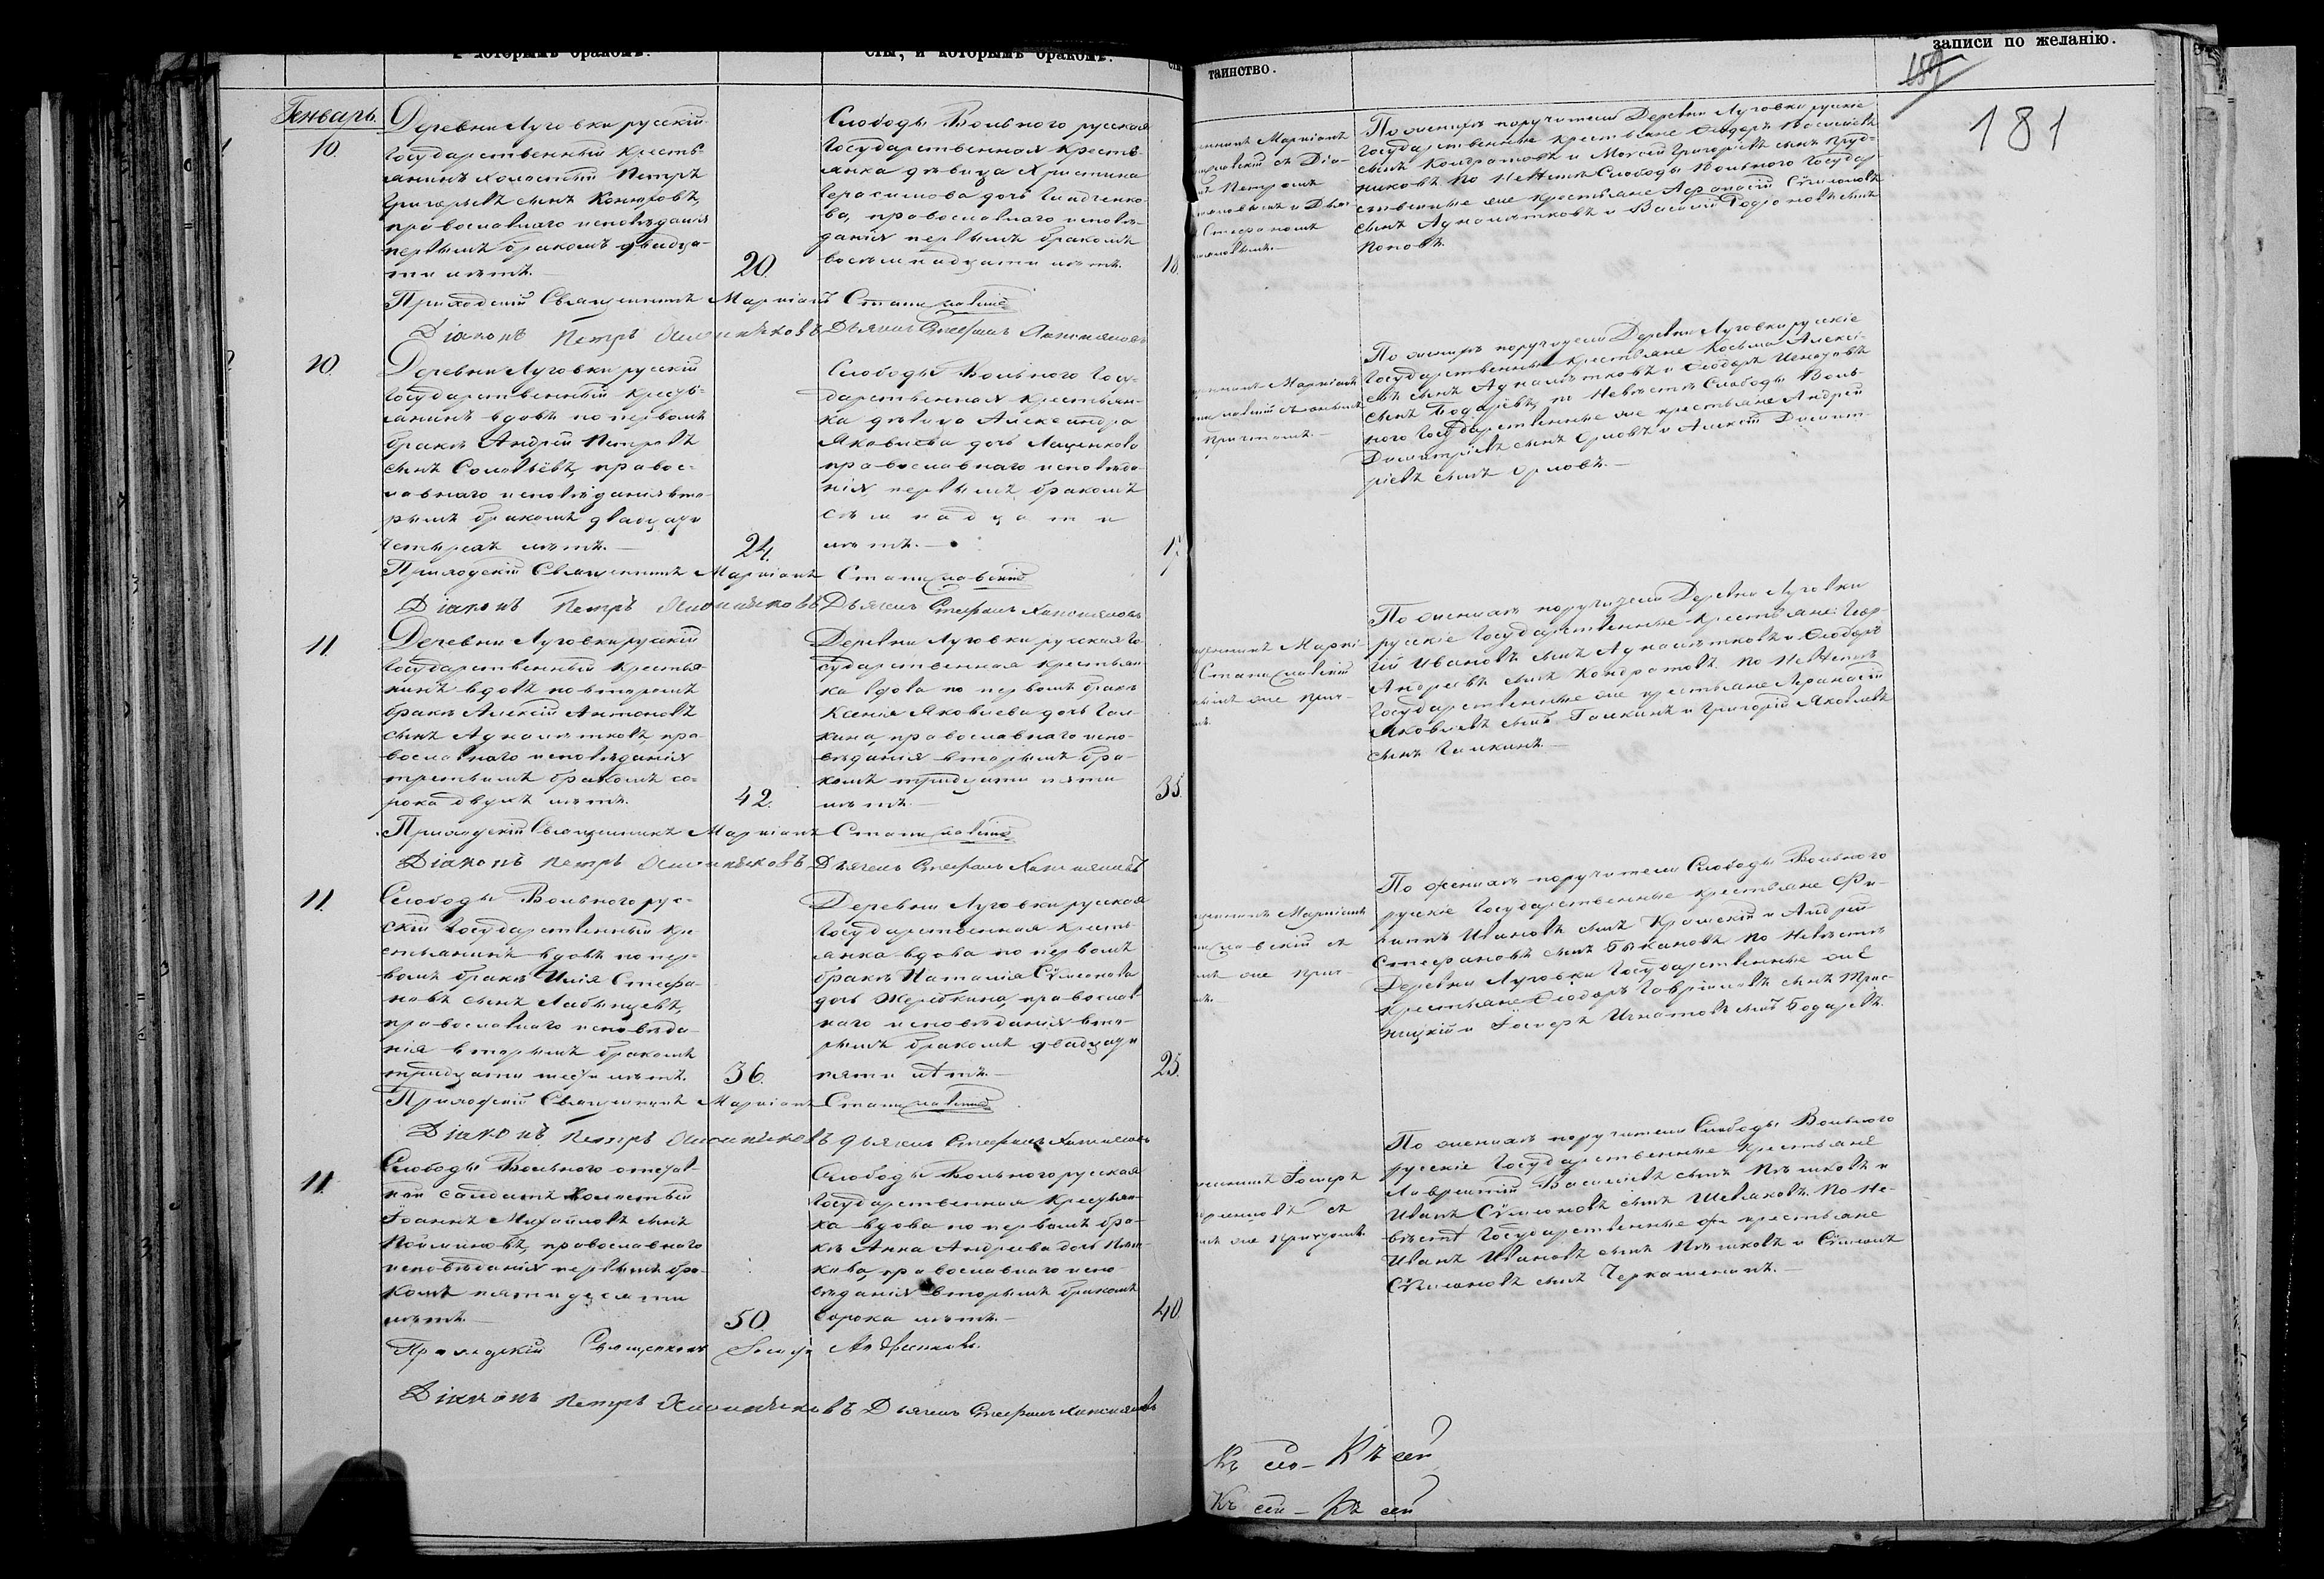 которымъ бракомъ.
сти, и которымъ бракомъ.
таинство.
записи по желанію.
159
181
Генварь.
10.
Деревни Луговки русскій
Государственный кресть-
янинъ холостый Петръ
Григорьевъ сынъ
православнаго исповѣданія
первымъ бракомъ двадца-
ти лѣтъ.
20.
Слободы Вольного русская
Государственная кресть-
янка дѣвица Христина
Герасимова дочь
ва, православнаго исповѣ-
данія первымъ бракомъ
восемнадцати лѣтъ.
18.
Маркіанъ
съ Діа-
Петромъ
Стефаномъ
По женихѣ поручители Деревни Луговки русскіе
Государственные крестьяне Ѳеодоръ Васильевъ
сынъ Кондратовъ и Моисей Григорьевъ сынъ Пруд-
никовъ по Невѣстѣ Слободы Вольного Государ-
ственные же крестьяне Аѳанасій Сѵмеоновъ
сынъ Адналѣтковъ и Василій Родіоновъ сынъ
Поповъ.
Приходскій Священникъ Маркіанъ Станиславскій
Діаконъ Петръ Дьячекъ Стефанъ
10.
Деревни Луговки русскій
Государственный кресть-
янинъ вдовъ по первомъ
бракѣ Андрей Петровъ
сынъ Соловьёвъ, правос-
лавнаго исповѣданія вто-
рымъ бракомъ двадцати
четырехъ лѣтъ.
24.
Слободы Вольного Госу-
дарственная крестьян-
ка дѣвица Александра
Яковлева дочь Лащенкова
православнаго исповѣда-
нія, первымъ бракомъ
семнадцати
лѣтъ.
17
Маркіанъ
причтомъ.
По женихѣ поручители Деревни Луговки русскіе
Государственные крестьяне Косьма Алексѣ-
евъ сынъ Адналѣтковъ и Ѳеодоръ Игнатовъ
сынъ Бодаревъ, по Невѣстѣ Слободы Воль-
ного Государственные же крестьяне Андрей
Димитріевъ сынъ Орловъ и Алексѣй Димит-
ріевъ сынъ Орловъ.
Приходскій Священникъ Маркіанъ Станиславскій
Діаконъ Петръ Дьячекъ Стефанъ
11.
Деревни Луговки русскій
Государственный крестья-
нинъ вдовъ по второмъ
бракѣ Алексій Антоновъ
сынъ Адналѣтковъ, пра-
вославнаго исповѣданія
третьимъ бракомъ со-
рока двухъ лѣтъ.
42.
Деревни Луговки русская Го-
сударственная крестьян-
ка вдова по первомъ бракѣ
Ксенія Яковлева дочь Гал-
кина, православнаго испо-
вѣданія вторымъ бра-
комъ тридцати пяти
лѣтъ.
35.
Маркі-
Станиславскій
же прич-
По женихѣ поручители Деревни Луговки
русскіе Государственные крестьяне Геор-
гій Ивановъ сынъ Адналѣтковъ и Ѳеодоръ
Андреевъ сынъ Кондратовъ. По Невѣстѣ
Государственные же крестьяне Аѳанасій
Яковлевъ сынъ Галкинъ и Григорій Яковлевъ
сынъ Галкинъ.
Приходскій Священникъ Маркіанъ Станиславскій
Діаконъ Петръ Дьячекъ Стефанъ
11.
Слободы Вольного рус-
скій Государственный кре-
стьянинъ вдовъ по пер-
вомъ бракѣ Илія Стефа-
новъ сынъ Лабынцевъ,
православнаго исповѣда-
нія вторымъ бракомъ
тридцати шести лѣтъ.
36.
Деревни Луговки русская
Государственная кресть-
янка вдова по первомъ
бракѣ Наталія Сѵмеонова
дочь Жеребкина, православ-
наго исповѣданія вто-
рымъ бракомъ двадцати
пяти лѣтъ.
25.
Маркіанъ
съ
же прич-
По женихѣ поручители Слободы Вольного
русскіе Государственные крестьяне Фи-
липпъ Ивановъ сынъ Крамскій и Андрей
Стефановъ сынъ Быкановъ. По Невѣстѣ
Деревни Луговки Государственные же
крестьяне Ѳеодоръ Гавріиловъ сынъ Трис-
ницкій и Іосифъ Игнатовъ сынъ Бодаревъ.
Приходскій Священникъ Маркіанъ Станиславскій
Діаконъ Петръ Дьячекъ Стефанъ
11.
Слободы Вольного отстав-
ной солдатъ холостый
Іоаннъ Михайловъ сынъ
православнаго
исповѣданія первымъ бра-
комъ пятидесяти
лѣтъ.
50.
Слободы Вольного русская
Государственная крестьян-
ка вдова по первомъ бра-
кѣ Анна Андреева дочь
православнаго испо-
вѣданія вторымъ бракомъ
сорока лѣтъ.
40.
Іосифъ
съ
же причтомъ.
По женихѣ поручители Слободы Вольного
русскіе Государственные крестьяне
Лаврентій Васильевъ сынъ Пѣшковъ и
Иванъ Сѵмеоновъ сынъ Шевляковъ. По Не-
вѣстѣ Государственные же крестьяне
Иванъ Ивановъ сынъ Пѣшковъ и Сѵмеонъ
Сѵмеоновъ сынъ Черкашенинъ.
Приходскій Священникъ Іосифъ
Діаконъ Петръ Дьячекъ Стефанъ
Къ сей
Къ сей